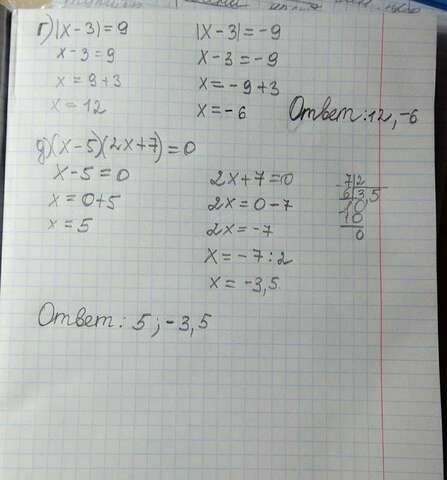 г) |x-3|=9
x-3=9
x=9+3
x=12
|x-3|=-9
x-3=-9
x=-9+3
x=-6
Ответ: 12,-6
д) (x-5)(2x+7)=0
x-5=0
x=0+5
x=5
2x+7=0
2x=0-7
2x=-7
x=-7:2
x=-3,5
7 2
6 3,5
10
10
0
Ответ: 5;-3,5